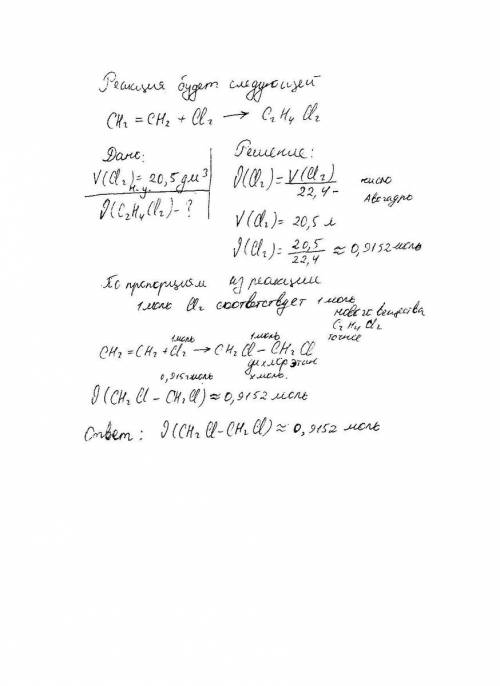 Реакция будет следующей
CH₂ = CH₂ + Cl₂ → C₂H₄Cl₂
Дано:
V(Cl₂) = 20,5 дм³
н.у.
J(C₂H₄Cl₂) - ?
Решение:
J(Cl₂) = V(Cl₂) / 22,4 - число Авогадро
V(Cl₂) = 20,5 л
J(Cl₂) = 20,5 / 22,4 ≈ 0,9152 моль
По пропорциям из реакции
1 моль Cl₂ соответствует 1 моль
нового вещества
C₂H₄Cl₂
точнее
1 моль 1 моль
CH₂ = CH₂ + Cl₂ → CH₂Cl – CH₂Cl
дихлорэтан
0,9152 моль x моль.
J(CH₂Cl – CH₂Cl) ≈ 0,9152 моль
Ответ: J(CH₂Cl – CH₂Cl) ≈ 0,9152 моль